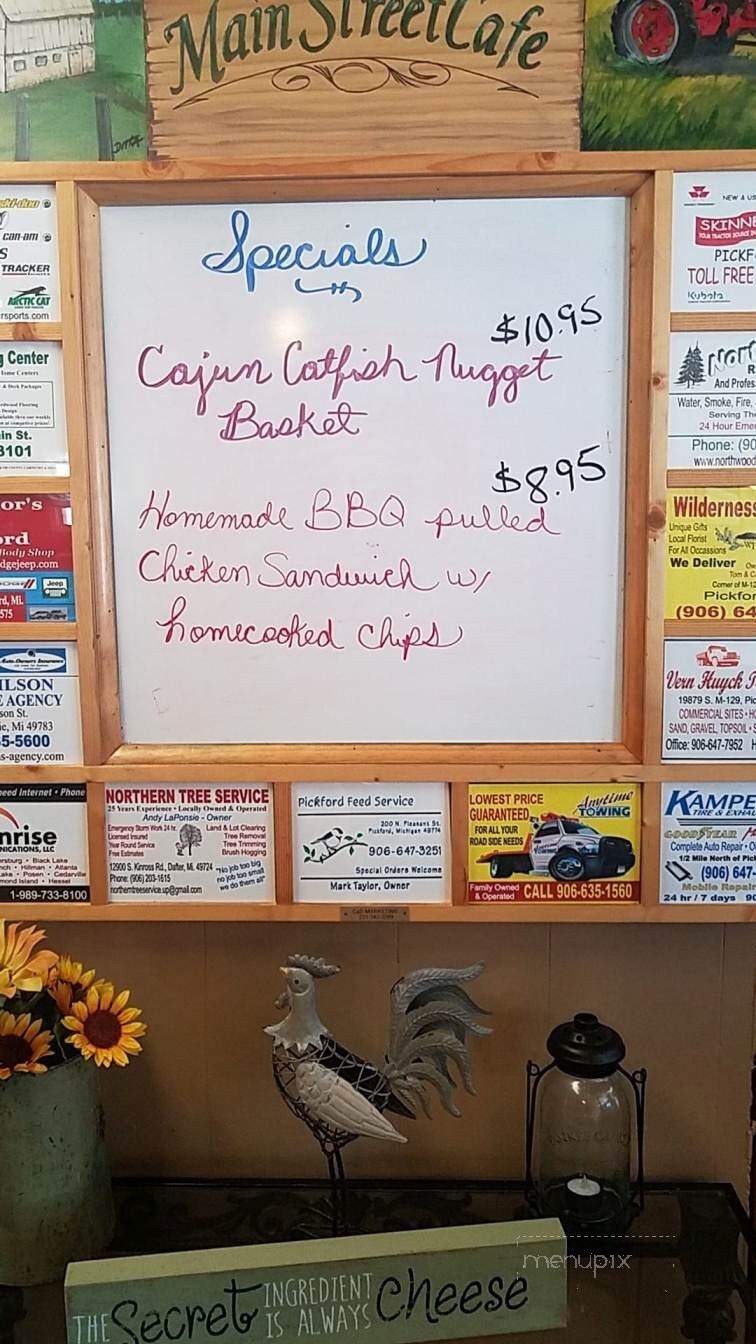 Main Street Cafe
DMTA
Specials
$10.95
Cajun Catfish Nugget
Basket
$8.95
Homemade BBQ pulled
Chicken Sandwich w/
homecooked chips
ski-doo
can-am
TRACKER
ARCTIC CAT
rsports.com
g Center
Home Centers
in St.
3101
or's
ord
Body Shop
dgejeep.com
Jeep
rd, Mi.
575
Auto-Owners Insurance
ILSON
E AGENCY
son St.
ie, Mi 49783
5-5600
s-agency.com
NEW & US
SKINNE
YOUR TRACTOR SOURCE IN
PICKF
TOLL FREE
Kubota
NOR
R
And Profes
Water, Smoke, Fire,
Serving The
24 Hour Eme
Phone: (90
www.northwood
Wilderness
Unique Gifts
Local Florist
For All Occassions
We Deliver
Tom & C
Corner of M-12
Pickfor
(906) 64
Vern Huyck T
19879 S. M-129, Pic
COMMERCIAL SITES • HO
SAND, GRAVEL, TOPSOIL • S
Office: 906-647-7952 H
peed Internet • Phone
nrise
NICATIONS, LLC
ersburg • Black Lake
nch • Hillman • Atlanta
Lake • Posen • Cedarville
mond Island • Hessel
1-989-733-8100
NORTHERN TREE SERVICE
25 Years Experience • Locally Owned & Operated
Andy LaPonsie - Owner
Emergency Storm Work 24 hr.
Licensed Insured
Year Round Service
Free Estimates
Land & Lot Clearing
Tree Removal
Tree Trimming
Brush Hogging
12900 S. Kinross Rd., Dafter, Mi. 49724
Phone: (906) 203-1615
northerntreeservice.up@gmail.com
"No job too big
no job too small
we do them all"
Pickford Feed Service
200 N. Pleasant St.
Pickford, Michigan 49774
906-647-3251
Special Orders Welcome
Mark Taylor, Owner
LOWEST PRICE
GUARANTEED
FOR ALL YOUR
ROAD SIDE NEEDS
Anytime
TOWING
Family Owned
& Operated
CALL 906-635-1560
KAMPE
TIRE & EXHA
GOODYEAR
Complete Auto Repair • O
1/2 Mile North of Pick
(906) 647-
Mobile Repair
24 hr / 7 days 90
C&D MARKETING
menupix
THE Secret INGREDIENT IS ALWAYS Cheese